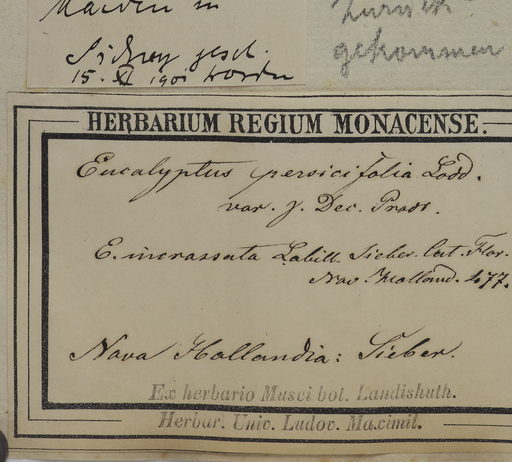 Maiden in
Sidney gesch.
15. XI 1901 worden
zurück
gekommen
HERBARIUM REGIUM MONACENSE.
Eucalyptus persicifolia Lodd.
var. γ. Dec. Prodr.
E. incrassata Labill. Sieber. Cat. Flor.
Nov. Holland. 477.
Nova Hollandia: Sieber.
Ex herbario Musei bot. Landishuth.
Herbar. Univ. Ludov. Maximil.